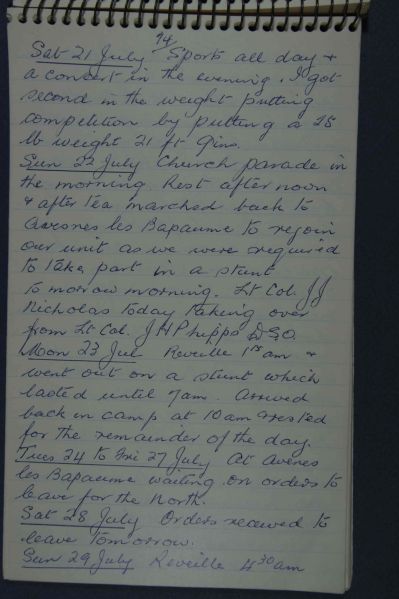 94
Sat 21 July. Sports all day +
a concert in the evening. I got
second in the weight putting
competition by putting a 28
lb weight 21 ft 9ins.
Sun 22 July Church parade in
the morning. Rest after noon
+ after tea marched back to
Avesnes les Bapaume to rejoin
our unit as we were required
to take part in a stunt
tomorrow morning. Lt Col. JJ
Nicholas today taking over
from Lt Col. J H Phipps DSO.
Mon 23 Jul Reveille 1 15 am +
went out on a stunt which
lasted until 7am. Arrived
back in camp at 10am + rested
for the remainder of the day.
Tues 24 to Fri 27 July At Avenes
les Bapaume waiting on orders to
leave for the North.
Sat 28 July Orders received to
leave tomorrow.
Sun 29 July Reveille 4 30 am